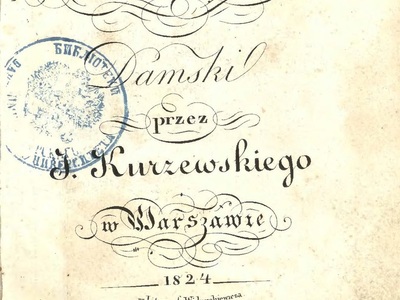 Damski
przez
J. Kurzewskiego
w Warszawie
1824
БИБЛІОТЕКА